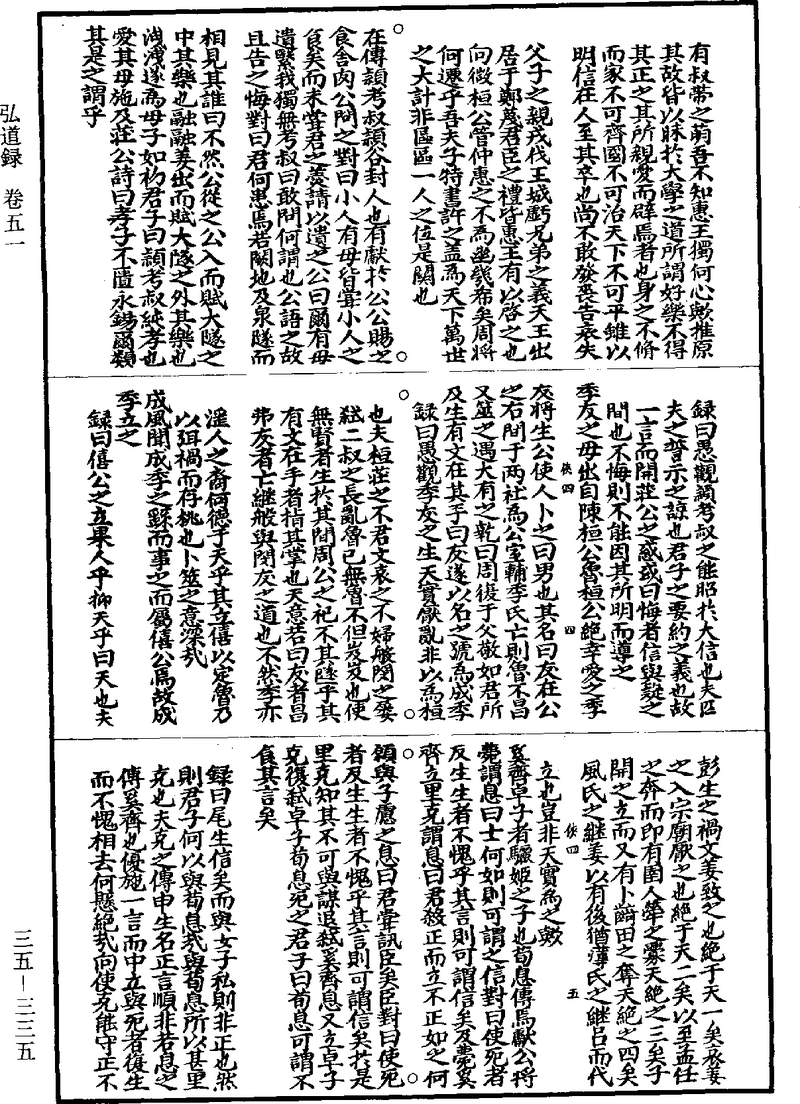 有叔帶之萌吾不知惠王獨何心歟推原
其故皆以昧於大學之道所謂好樂不得
其正之其所親愛而辟焉者也身之不脩
而家不可齊國不可治天下不可平雖以
明信在人至其卒也尚不敢發喪告哀失
父子之親戎伐王城虧兄弟之義天王出
居于鄭蔑君臣之禮皆惠王有以啓之也
向微桓公管仲惠之不為幽幾希矣周將
何遷乎吾夫子特書許之蓋為天下萬世
之大計非區區一人之位是關也
○
在傳潁考叔潁谷封人也有獻於公公賜之
食舍肉公問之對曰小人有母皆嘗小人之
食矣而未嘗君之羹請以遺之公曰爾有母
遺繄我獨無考叔曰敢問何謂也公語之故
且告之悔對曰君何患焉若闕地及泉隧而
相見其誰曰不然公從之公入而賦大隧之
中其樂也融融姜出而賦大隧之外其樂也
洩洩遂為母子如初君子曰潁考叔純孝也
愛其母施及莊公詩曰孝子不匱永錫爾類
其是之謂乎
録曰愚觀潁考叔之能昭於大信也夫匹
夫之誓示之諒也君子之要約之義也故
一言而開莊公之惑或曰悔者信與疑之
間也不悔則不能因其所明而導之
季友之母出自陳桓公魯桓公絕幸愛之季
友將生公使人卜之曰男也其名曰友在公
之右間于兩社為公室輔季氏亡則魯不昌
又筮之遇大有之乾曰周復于父敬如君所
及生有文在其手曰友遂以名之號為成季
録曰愚觀季友之生天實厭亂非以為桓
也夫桓莊之不君文哀之不婦般閔之
弒二叔之長亂魯已無魯不但岌岌也使
無賢者生於其間周公之祀不其隧乎其
有文在手者指其掌也天意若曰友者昌
弗友者亡繼般與閔友之道也不然季亦
淫人之裔何德于天乎其立僖以定魯乃
以弭禍而存祧也卜筮之意深哉
成風聞成季之繇而事之而屬僖公焉故成
季立之
録曰僖公之立果人乎抑天乎曰天也夫
彭生之禍文姜致之也絕于天一矣哀姜
之入宗廟厭之也絕于天二矣以至孟任
之奔而即有圉人犖之釁天絕之三矣子
開之立而又有卜齮田之奪天絕之四矣
風氏之繼姜以有後猶薄氏之繼呂而代
立也豈非天實為之歟
奚齊卓子者驪姬之子也荀息傅焉獻公將
薨謂息曰士何如則可謂之信對曰使死者
反生生者不愧乎其言則可謂信矣及薨奚
齊立里克謂息曰君殺正而立不正如之何
願與子慮之息曰君嘗訊臣矣臣對曰使死
者反生生者不愧乎其言則可謂信矣於是
里克知其不可與謀退弒奚齊息又立卓子
克復弒卓子荀息死之君子曰荀息可謂不
食其言矣
録曰尾生信矣而與女子私則非正也然
則君子何以與荀息哉與荀息所以甚里
克也夫克之傅申生名正言順非若息之
傅奚齊也優施一言而中立與死者復生
而不愧相去何懸絕哉向使克能守正不
弘道録 卷五一
三五—三三五